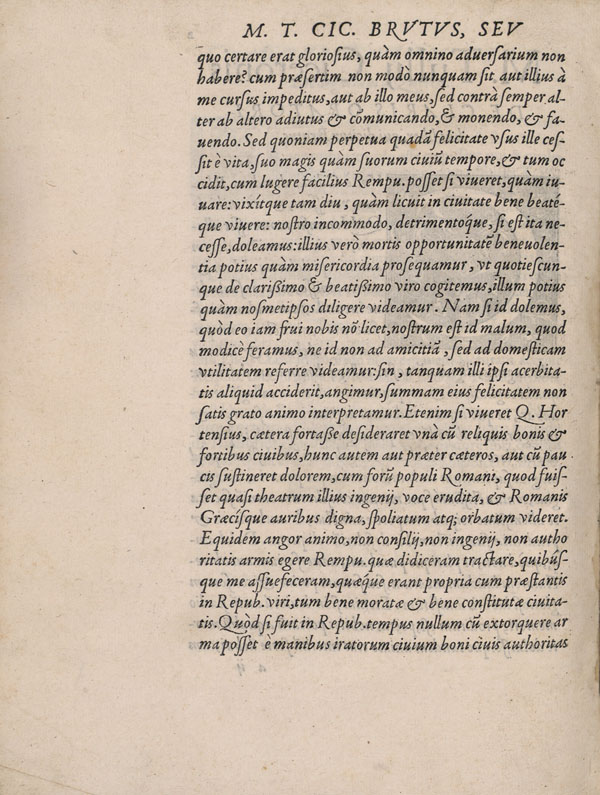 M. T. CIC. BRVTVS, SEV
quo certare erat gloriosius, quàm omnino aduersarium non
habere? cum præsertim non modò nunquam sit aut illius à
me cursus impeditus, aut ab illo meus, sed contrà semper al-
ter ab altero adiutus & cõmunicando, & monendo, & fa-
uendo. Sed quoniam perpetua quadã felicitate vsus ille ces-
sit è vita, suo magis quàm suorum ciuiũ tempore, & tum oc
cidit, cum lugere facilius Rempu. posset si viueret, quàm iu-
uare: vixítque tam diu, quàm licuit in ciuitate bene beaté-
que viuere: nostro incommodo, detrimentoq́ue, si est ita ne-
cesse, doleamus: illius verò mortis opportunitatẽ beneuolen-
tia potius quàm misericordia prosequamur, vt quotiescun-
que de clarißimo & beatißimo viro cogitemus, illum potius
quàm nosmetipsos diligere videamur. Nam si id dolemus,
quòd eo iam frui nobis nõ licet, nostrum est id malum, quod
modicè feramus, ne id non ad amicitiã, sed ad domesticam
vtilitatem referre videamur: sin, tanquam illi ipsi acerbita-
tis aliquid acciderit, angimur, summam eius felicitatem non
satis grato animo interpretamur. Etenim si viueret Q. Hor
tensius, cætera fortaße desideraret vnà cũ reliquis bonis &
fortibus ciuibus, hunc autem aut præter cæteros, aut cũ pau
cis sustineret dolorem, cum forũ populi Romani, quod fuis-
set quasi theatrum illius ingenij, voce erudita, & Romanis
Græcisque auribus digna, spoliatum atq; orbatum videret.
Equidem angor animo, non consilij, non ingenij, non autho
ritatis armis egere Rempu. quæ didiceram tractare, quibús-
que me assuefeceram, quæque erant propria cum præstantis
in Repub. viri, tum bene moratæ & bene constitutæ ciuita-
tis. Quòd si fuit in Repub. tempus nullum cũ extorquere ar
ma posset è manibus iratorum ciuium boni ciuis authoritas